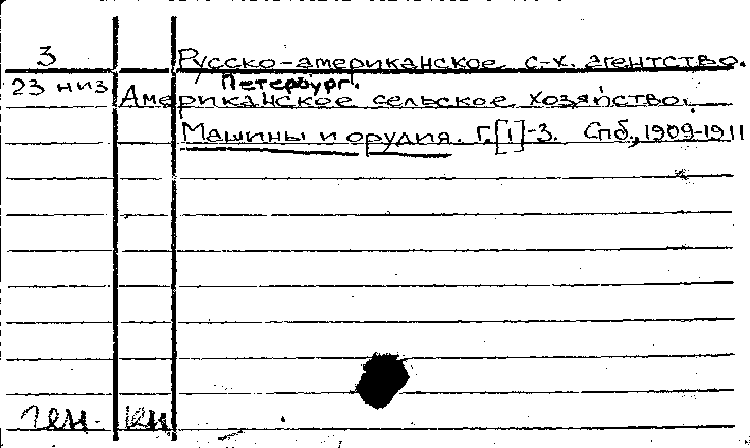 3 Русско-американское с-х. агентство.
Петербург.
23 низ Американское сельское хозяйство.
Машины и орудия. Г.[1]-3. Спб., 1909-1911
ген. кн